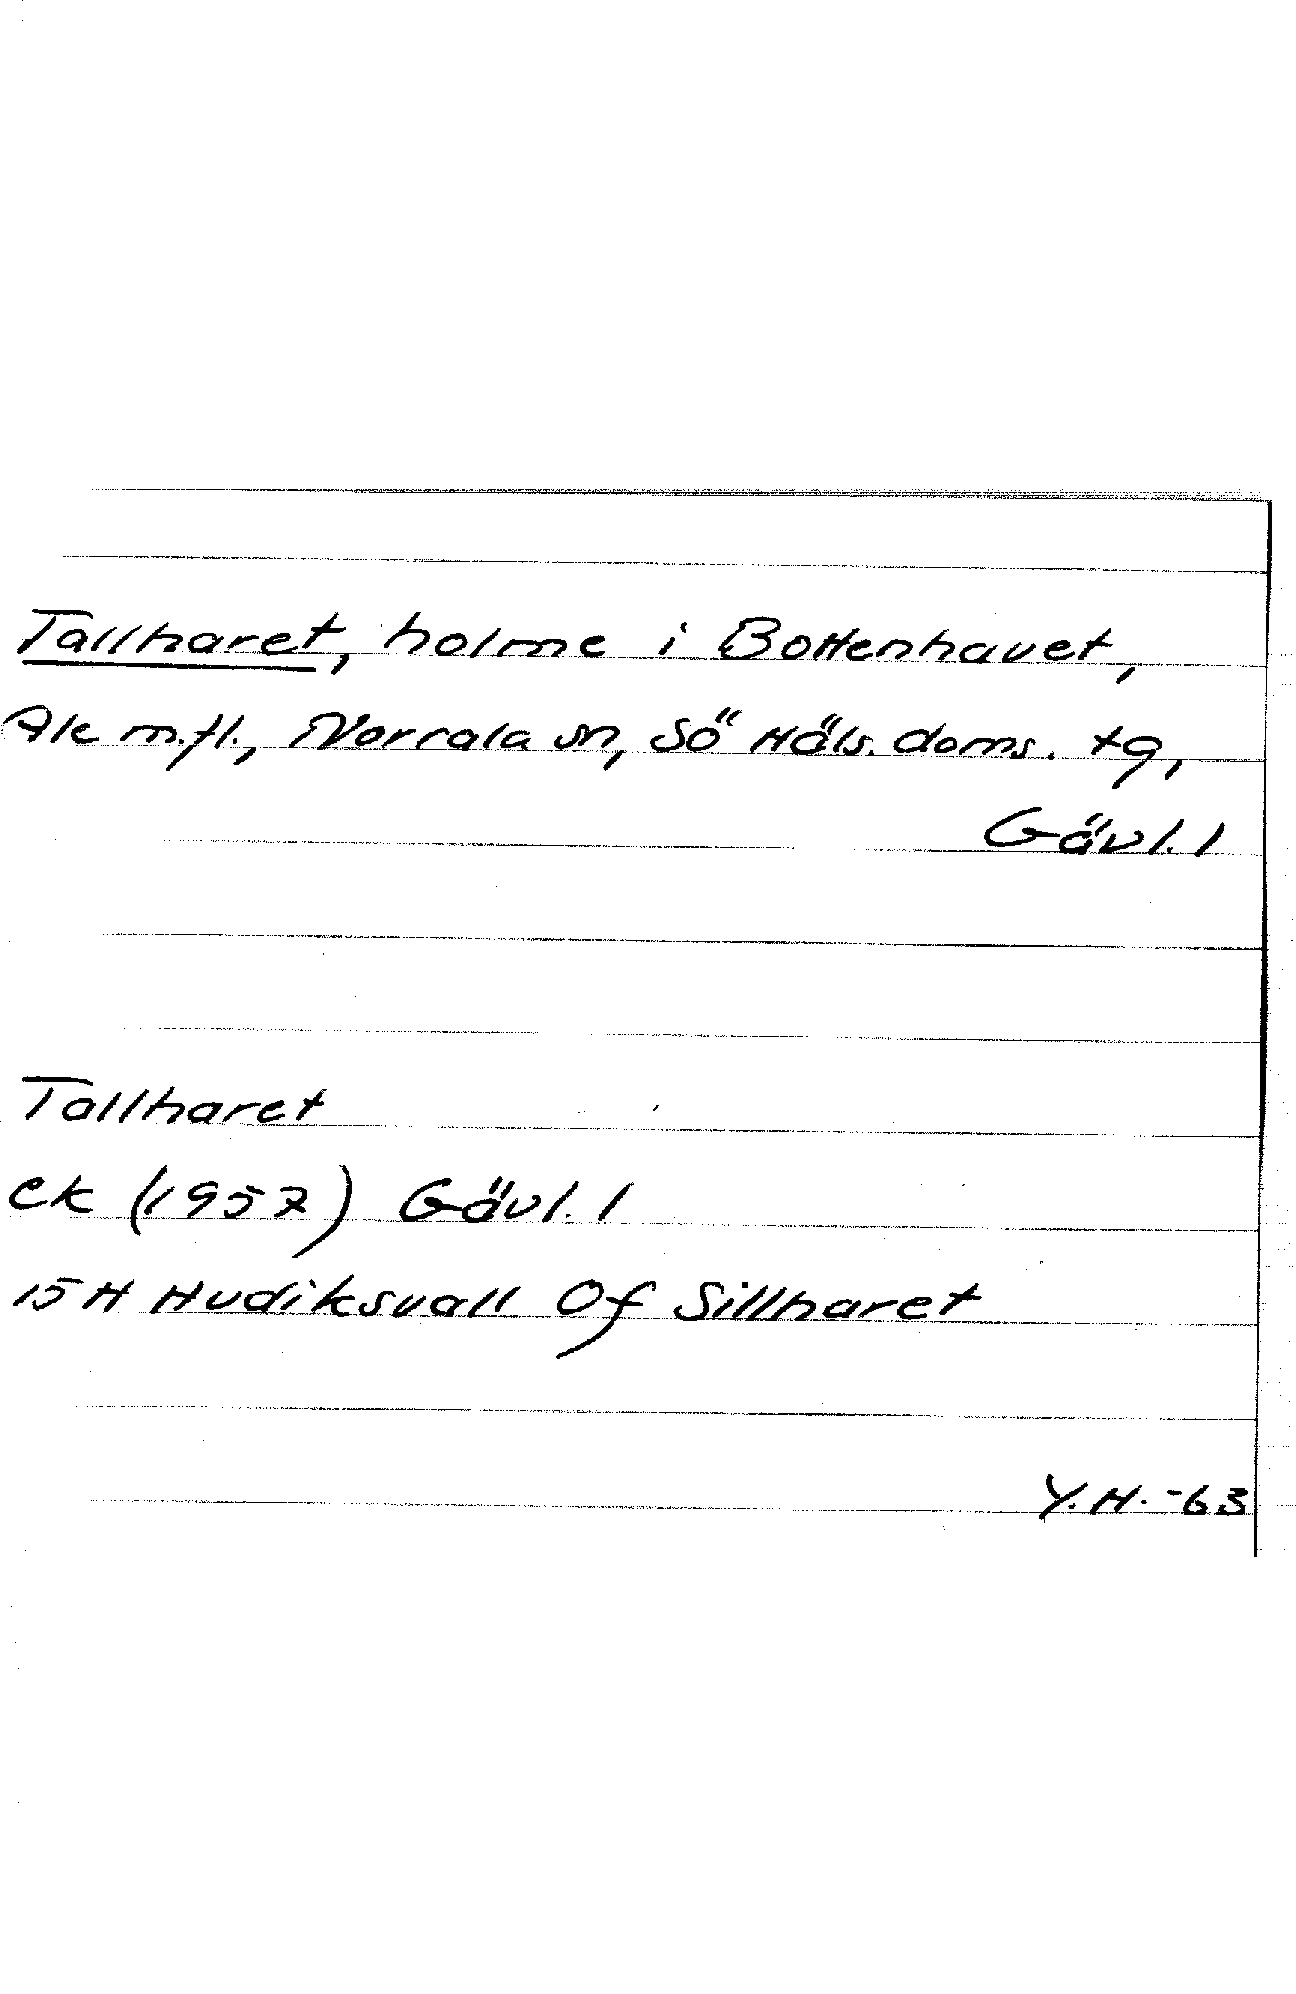 Tallharet, holme i Bottenhavet,
Ale m.fl., Norrala sn, Sö Häls. doms. tg,
Gävl. l
Tallharet
ek (1957) Gävl. l
15H Hudiksvall Of Sillharet
Y.H. -63